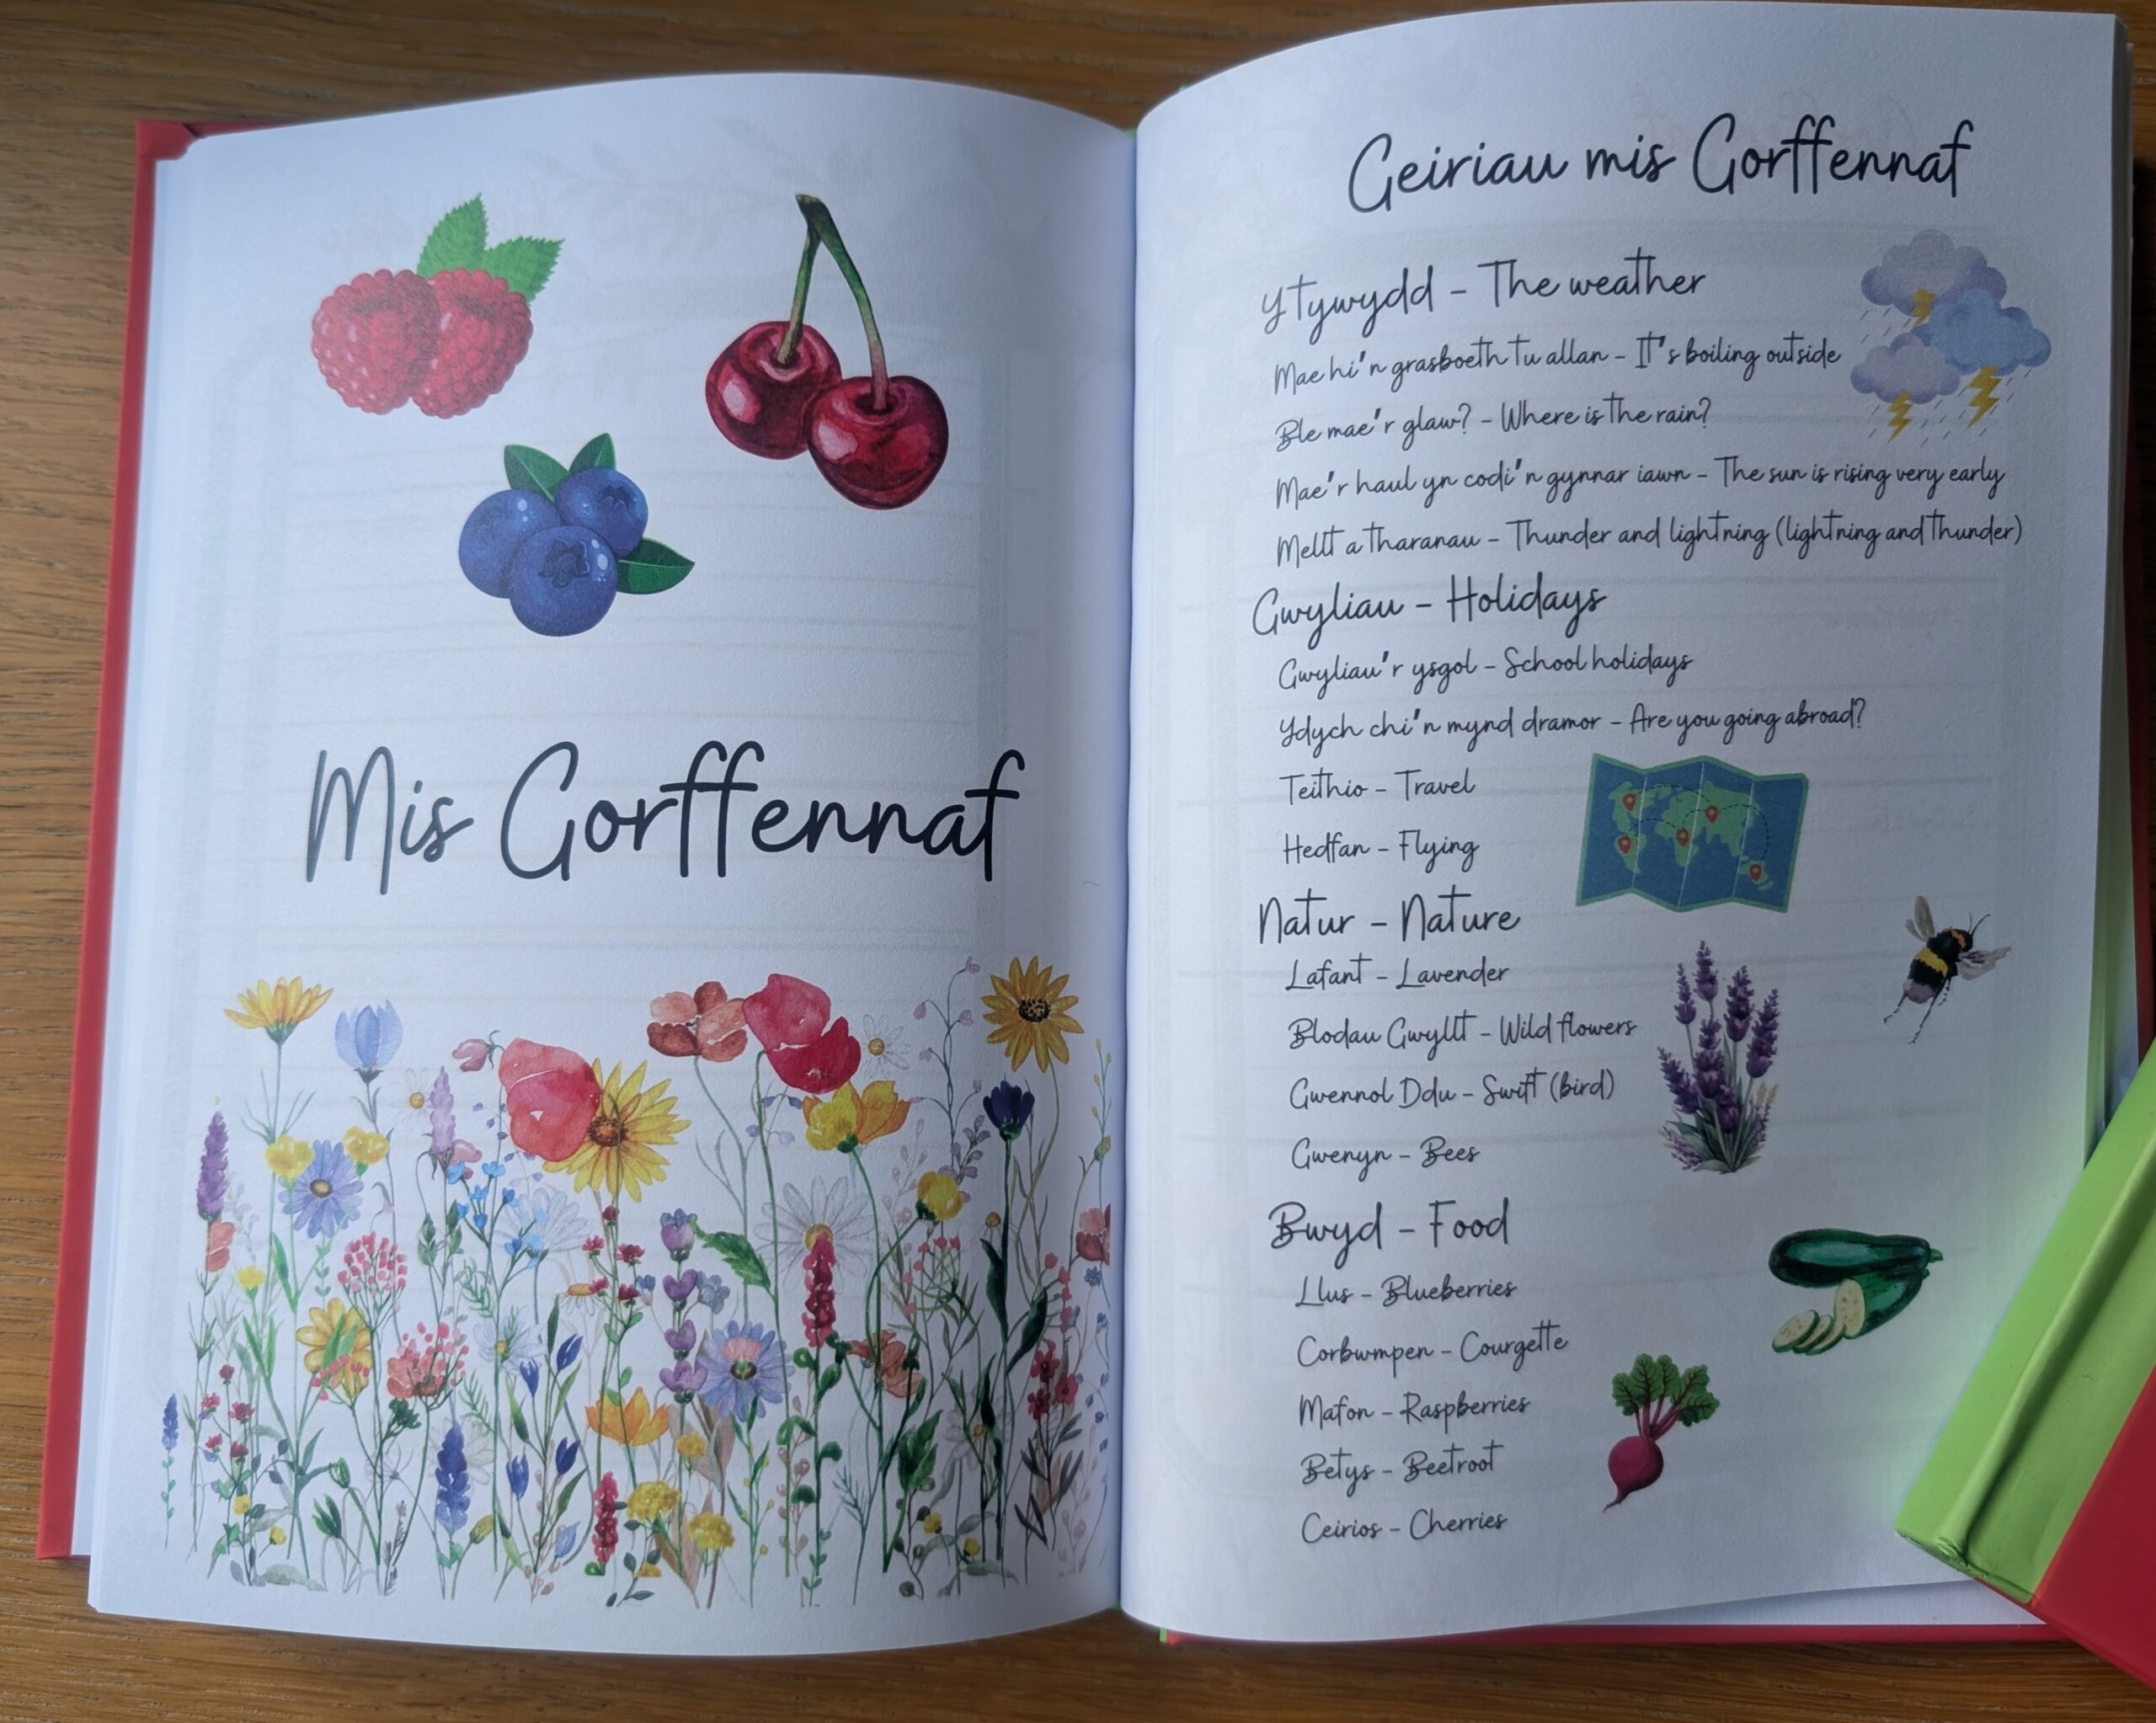 Mis Gorffennaf
Geiriau mis Gorffennaf
Y Tywydd - The weather
Mae hi'n grasboeth tu allan - It's boiling outside
Ble mae'r glaw? - Where is the rain?
Mae'r haul yn codi'n gynnar iawn - The sun is rising very early
Mellt a tharanau - Thunder and lightning (lightning and thunder)
Gwyliau - Holidays
Gwyliau'r ysgol - School holidays
Ydych chi'n mynd dramor - Are you going abroad?
Teithio - Travel
Hedfan - Flying
Natur - Nature
Lafant - Lavender
Blodau Gwyllt - Wild flowers
Gwennol Ddu - Swift (bird)
Gwenyn - Bees
Bwyd - Food
Llus - Blueberries
Corbwmpen - Courgette
Mafon - Raspberries
Betys - Beetroot
Ceirios - Cherries